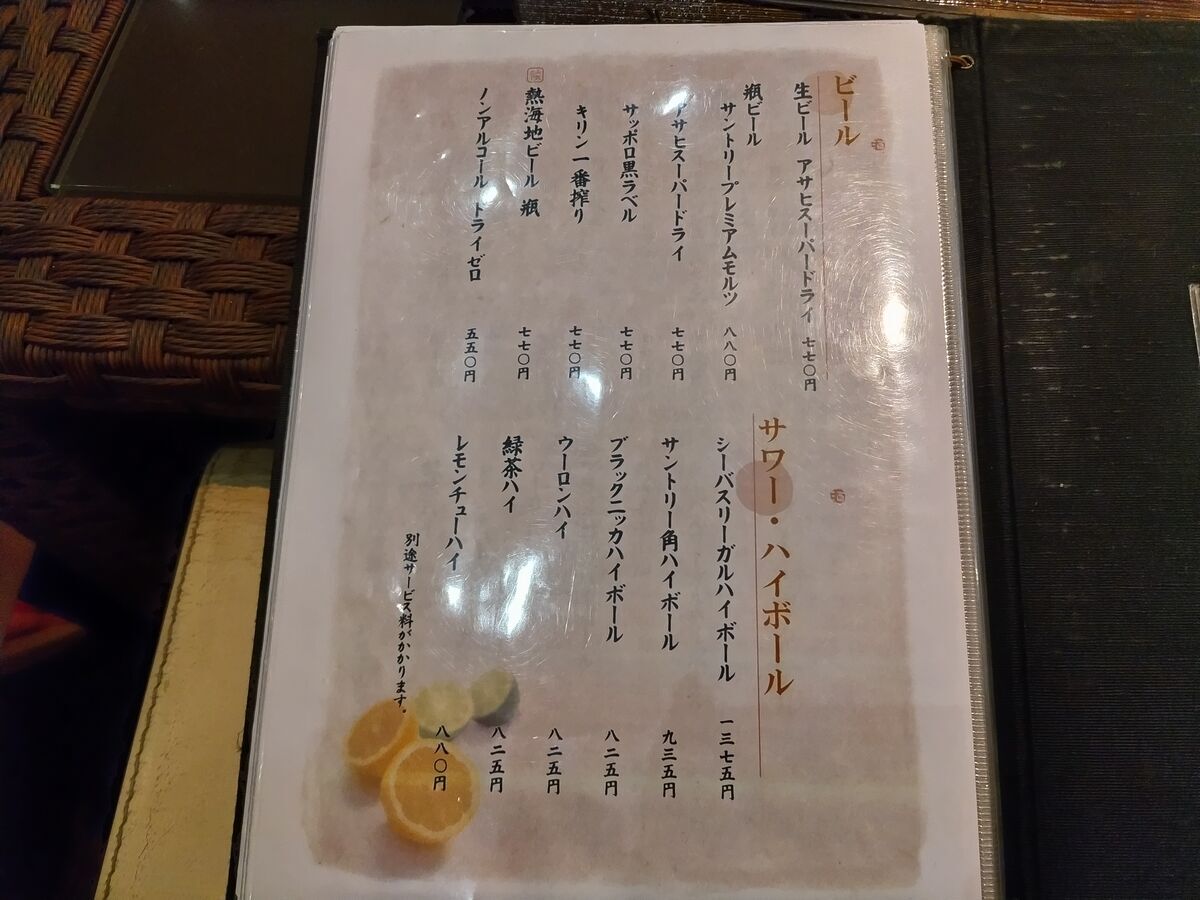 ビール
生ビール アサヒスーパードライ 七七〇円
瓶ビール
サントリープレミアムモルツ 八八〇円
アサヒスーパードライ 七七〇円
サッポロ黒ラベル 七七〇円
キリン一番搾り 七七〇円
熱海地ビール 瓶 七七〇円
ノンアルコール ドライゼロ 五五〇円
サワー・ハイボール
シーバスリーガルハイボール 一三七五円
サントリー角ハイボール 九三五円
ブラックニッカハイボール 八二五円
ウーロンハイ 八二五円
緑茶ハイ 八二五円
レモンチューハイ 八八〇円
別途サービス料がかかります。